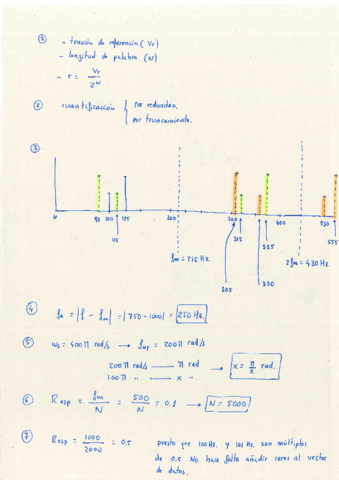 ① - tensión de referencia (Vr)
- longitud de palabra (N)
- r = Vr / 2^N
② cuantificación { por redondeo.
por truncamiento.
③
0 100 115 125 200 205 215 225 230 400
fm = 215 Hz.
2fm = 430 Hz.
530 555
④ fa = |f - fm| = |750 - 1000| = 250 Hz.
⑤ ws = 400π rad/s → fNy = 200π rad/s
200π rad/s — π rad
100π " — x " → x = π/2 rad.
⑥ Resp = fm/N = 500/N = 0.1 → N = 5000
⑦ Resp = 1000/2000 = 0.5 puesto que 100 Hz. y 101 Hz. son múltiplos
de 0.5 No hace falta añadir ceros al vector
de datos.